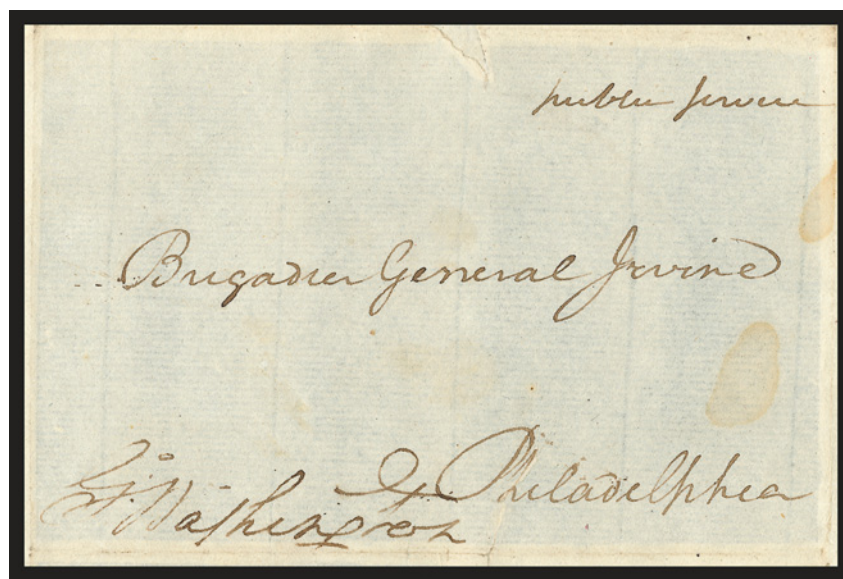 public service
Brigadier General Irvine
Philadelphia
Go: Washington